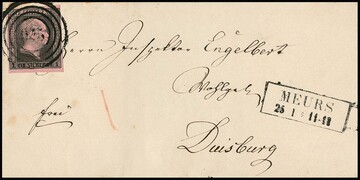 Herrn Inspektor Engelbert
Wohlgeb.
frei
Duisburg
MEURS
25 1 11-11